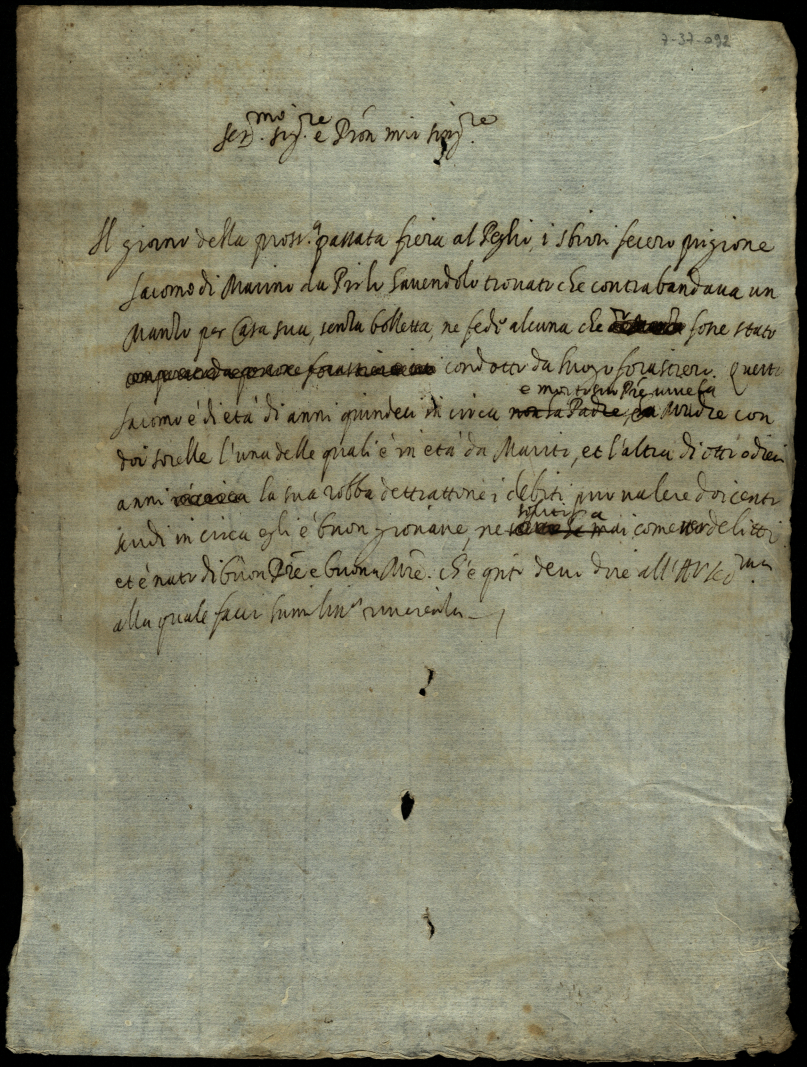 7-37-092
Ser.mo sig.re e Pron mio sing.re
Il giorno della pross.a passata fiera al Peglio, i sbirri fecero prigione
Iacomo di Marino da Pirlo havendolo trovato che contrabandava un
Manzo per Casa sua, senza bolletta, ne fede alcuna che fosse stato
condotto da luogo forastiero. Questo
e morto suo Pre, vive la
Iacomo è di età di anni quindeci in circa non ha Padre, Madre con
doi sorelle l'una delle quali è in età da Marito, et l'altra di otto o dieci
anni la sua robba dettrattone i debiti può valere doicento
solito
scudi in circa egli è buon giovane, ne mai comesso delitti
et è nato di buon Pre e buona Mre. Ch'è qnto devo dire all'
alla quale facci humiliss.a riverenza